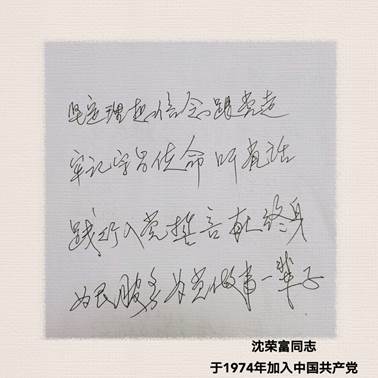 坚定理想信念跟党走
牢记字民使命听党话
践行入党誓言献终身
为民服务为党做事一辈子
沈荣富同志
于1974年加入中国共产党